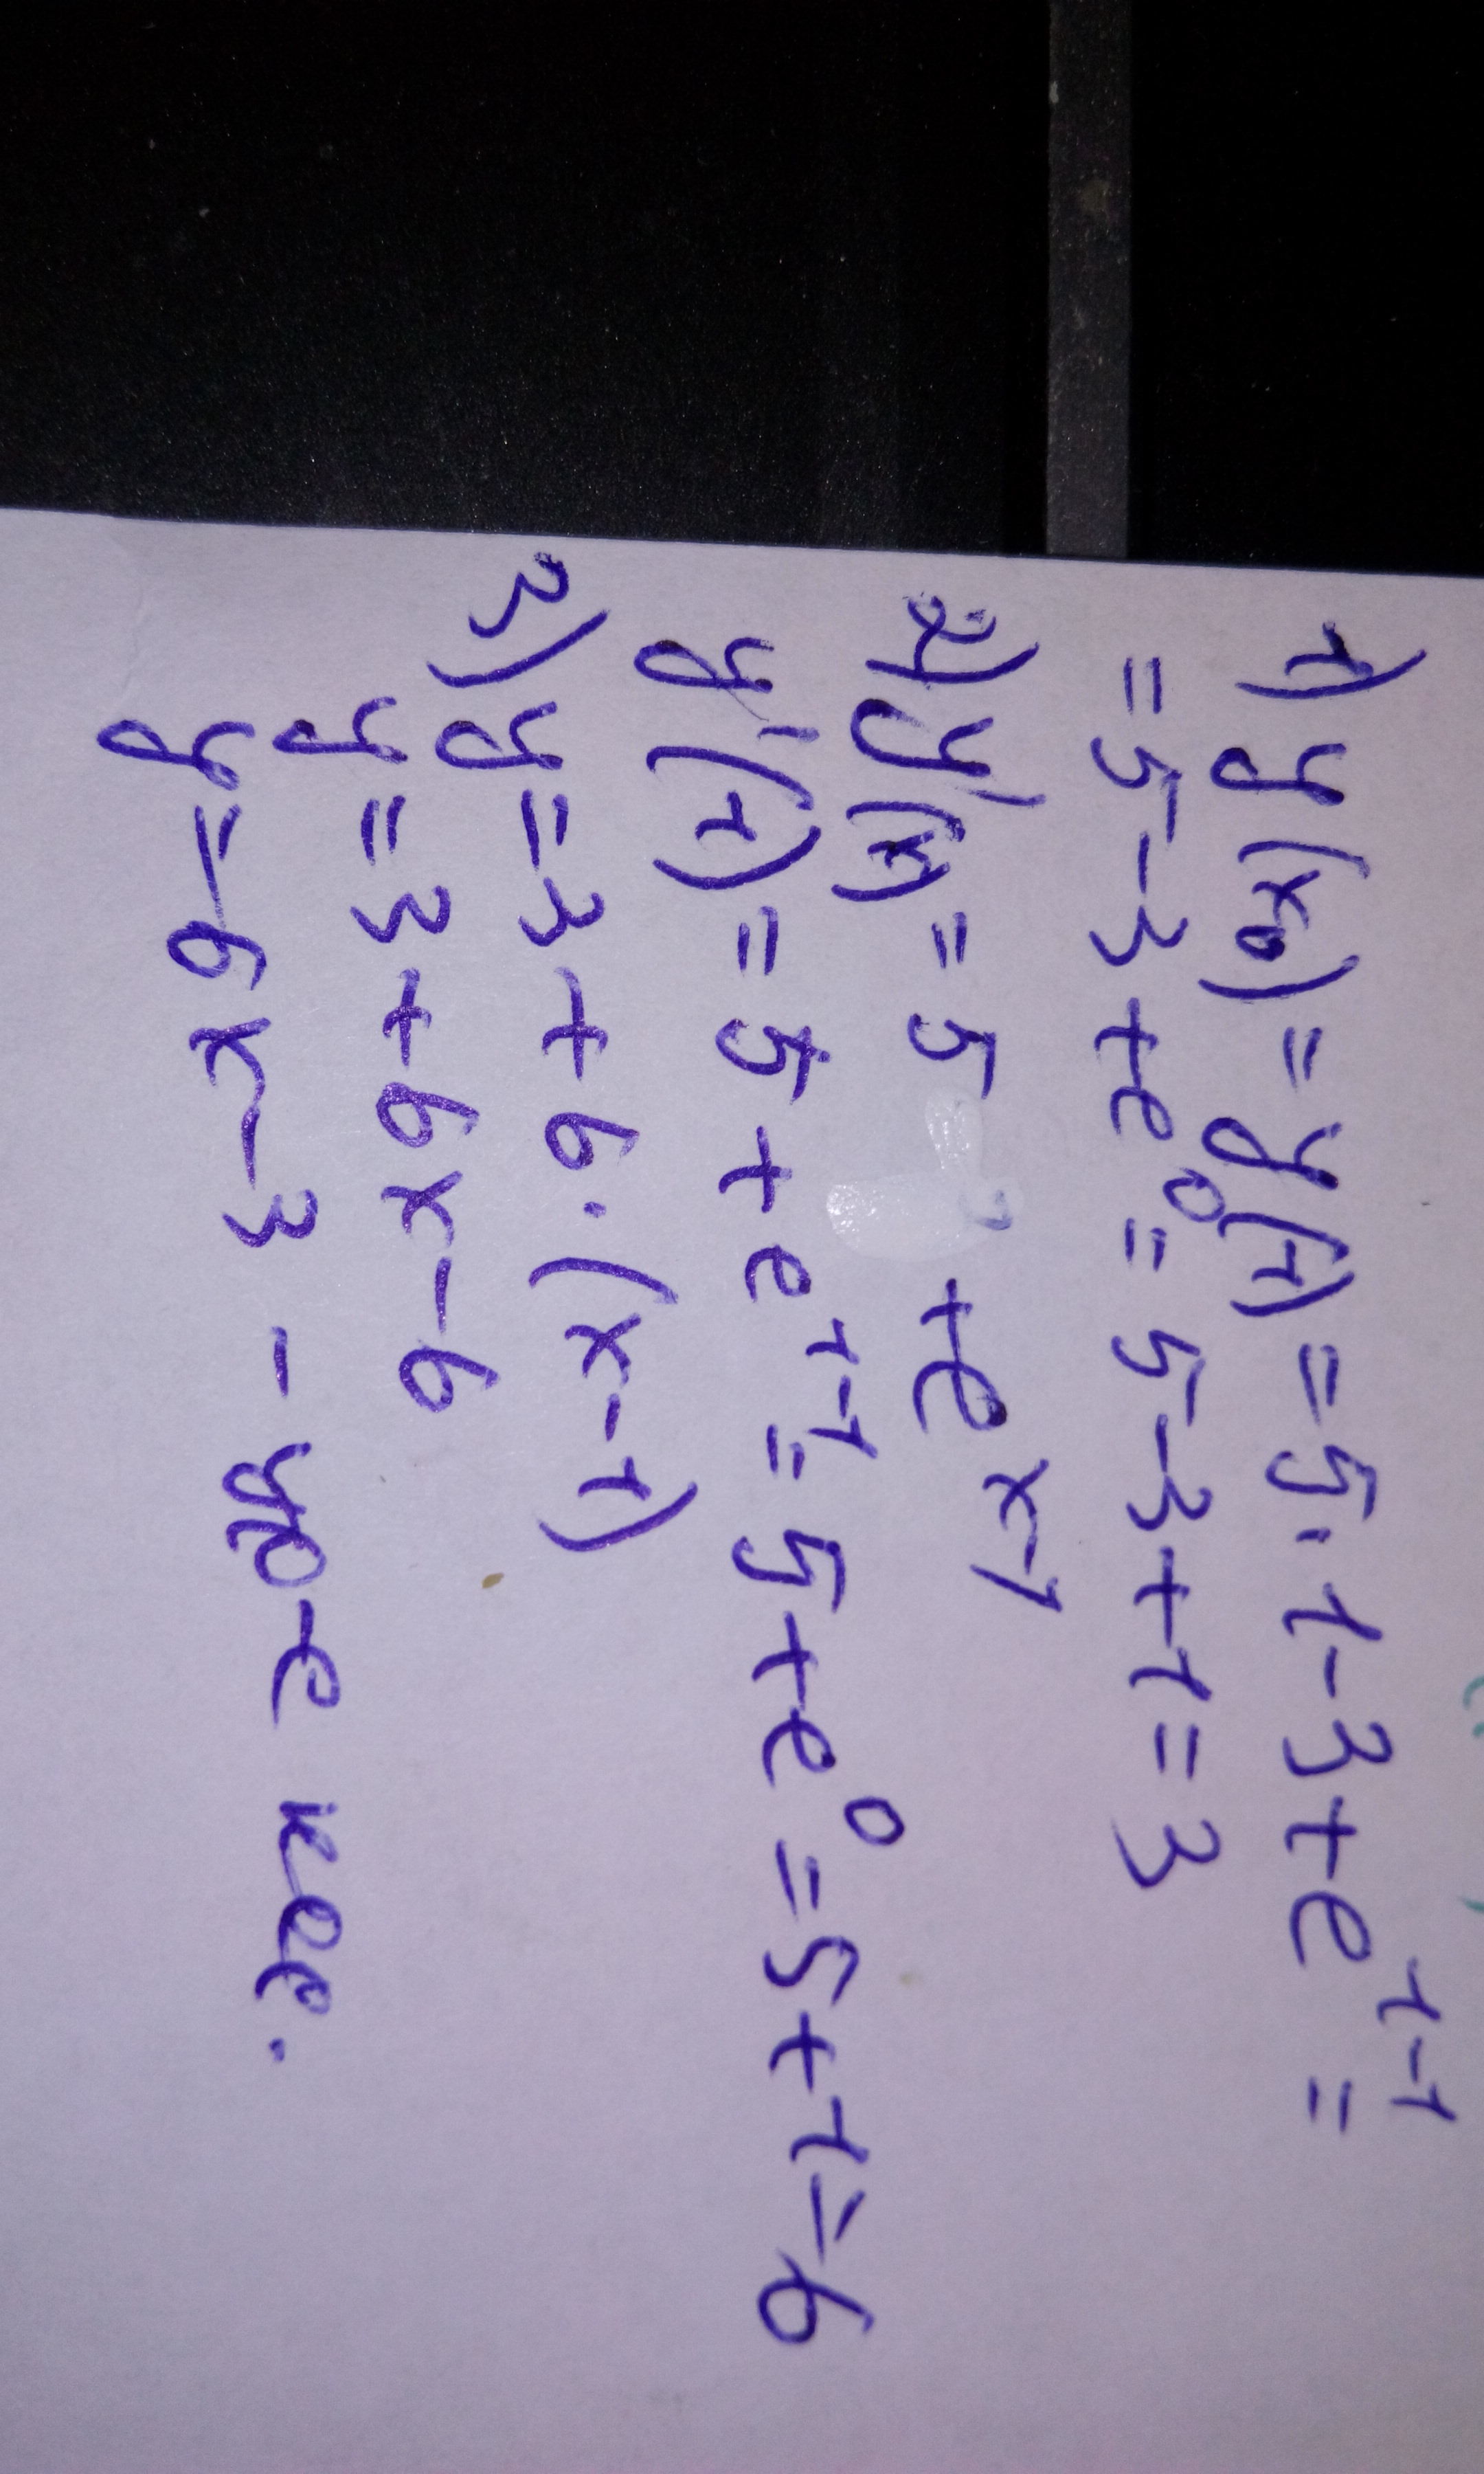 1) y(x₀) = y(1) = 5·1-3+e¹⁻¹ =
= 5-3+e⁰ = 5-3+1 = 3
2) y'(x) = 5 +eˣ⁻¹
y'(1) = 5 + e¹⁻¹ = 5+e⁰ = 5+1=6
3) y = 3 + 6·(x-1)
y = 3 + 6x-6
y = 6x-3 - ур-е кас.